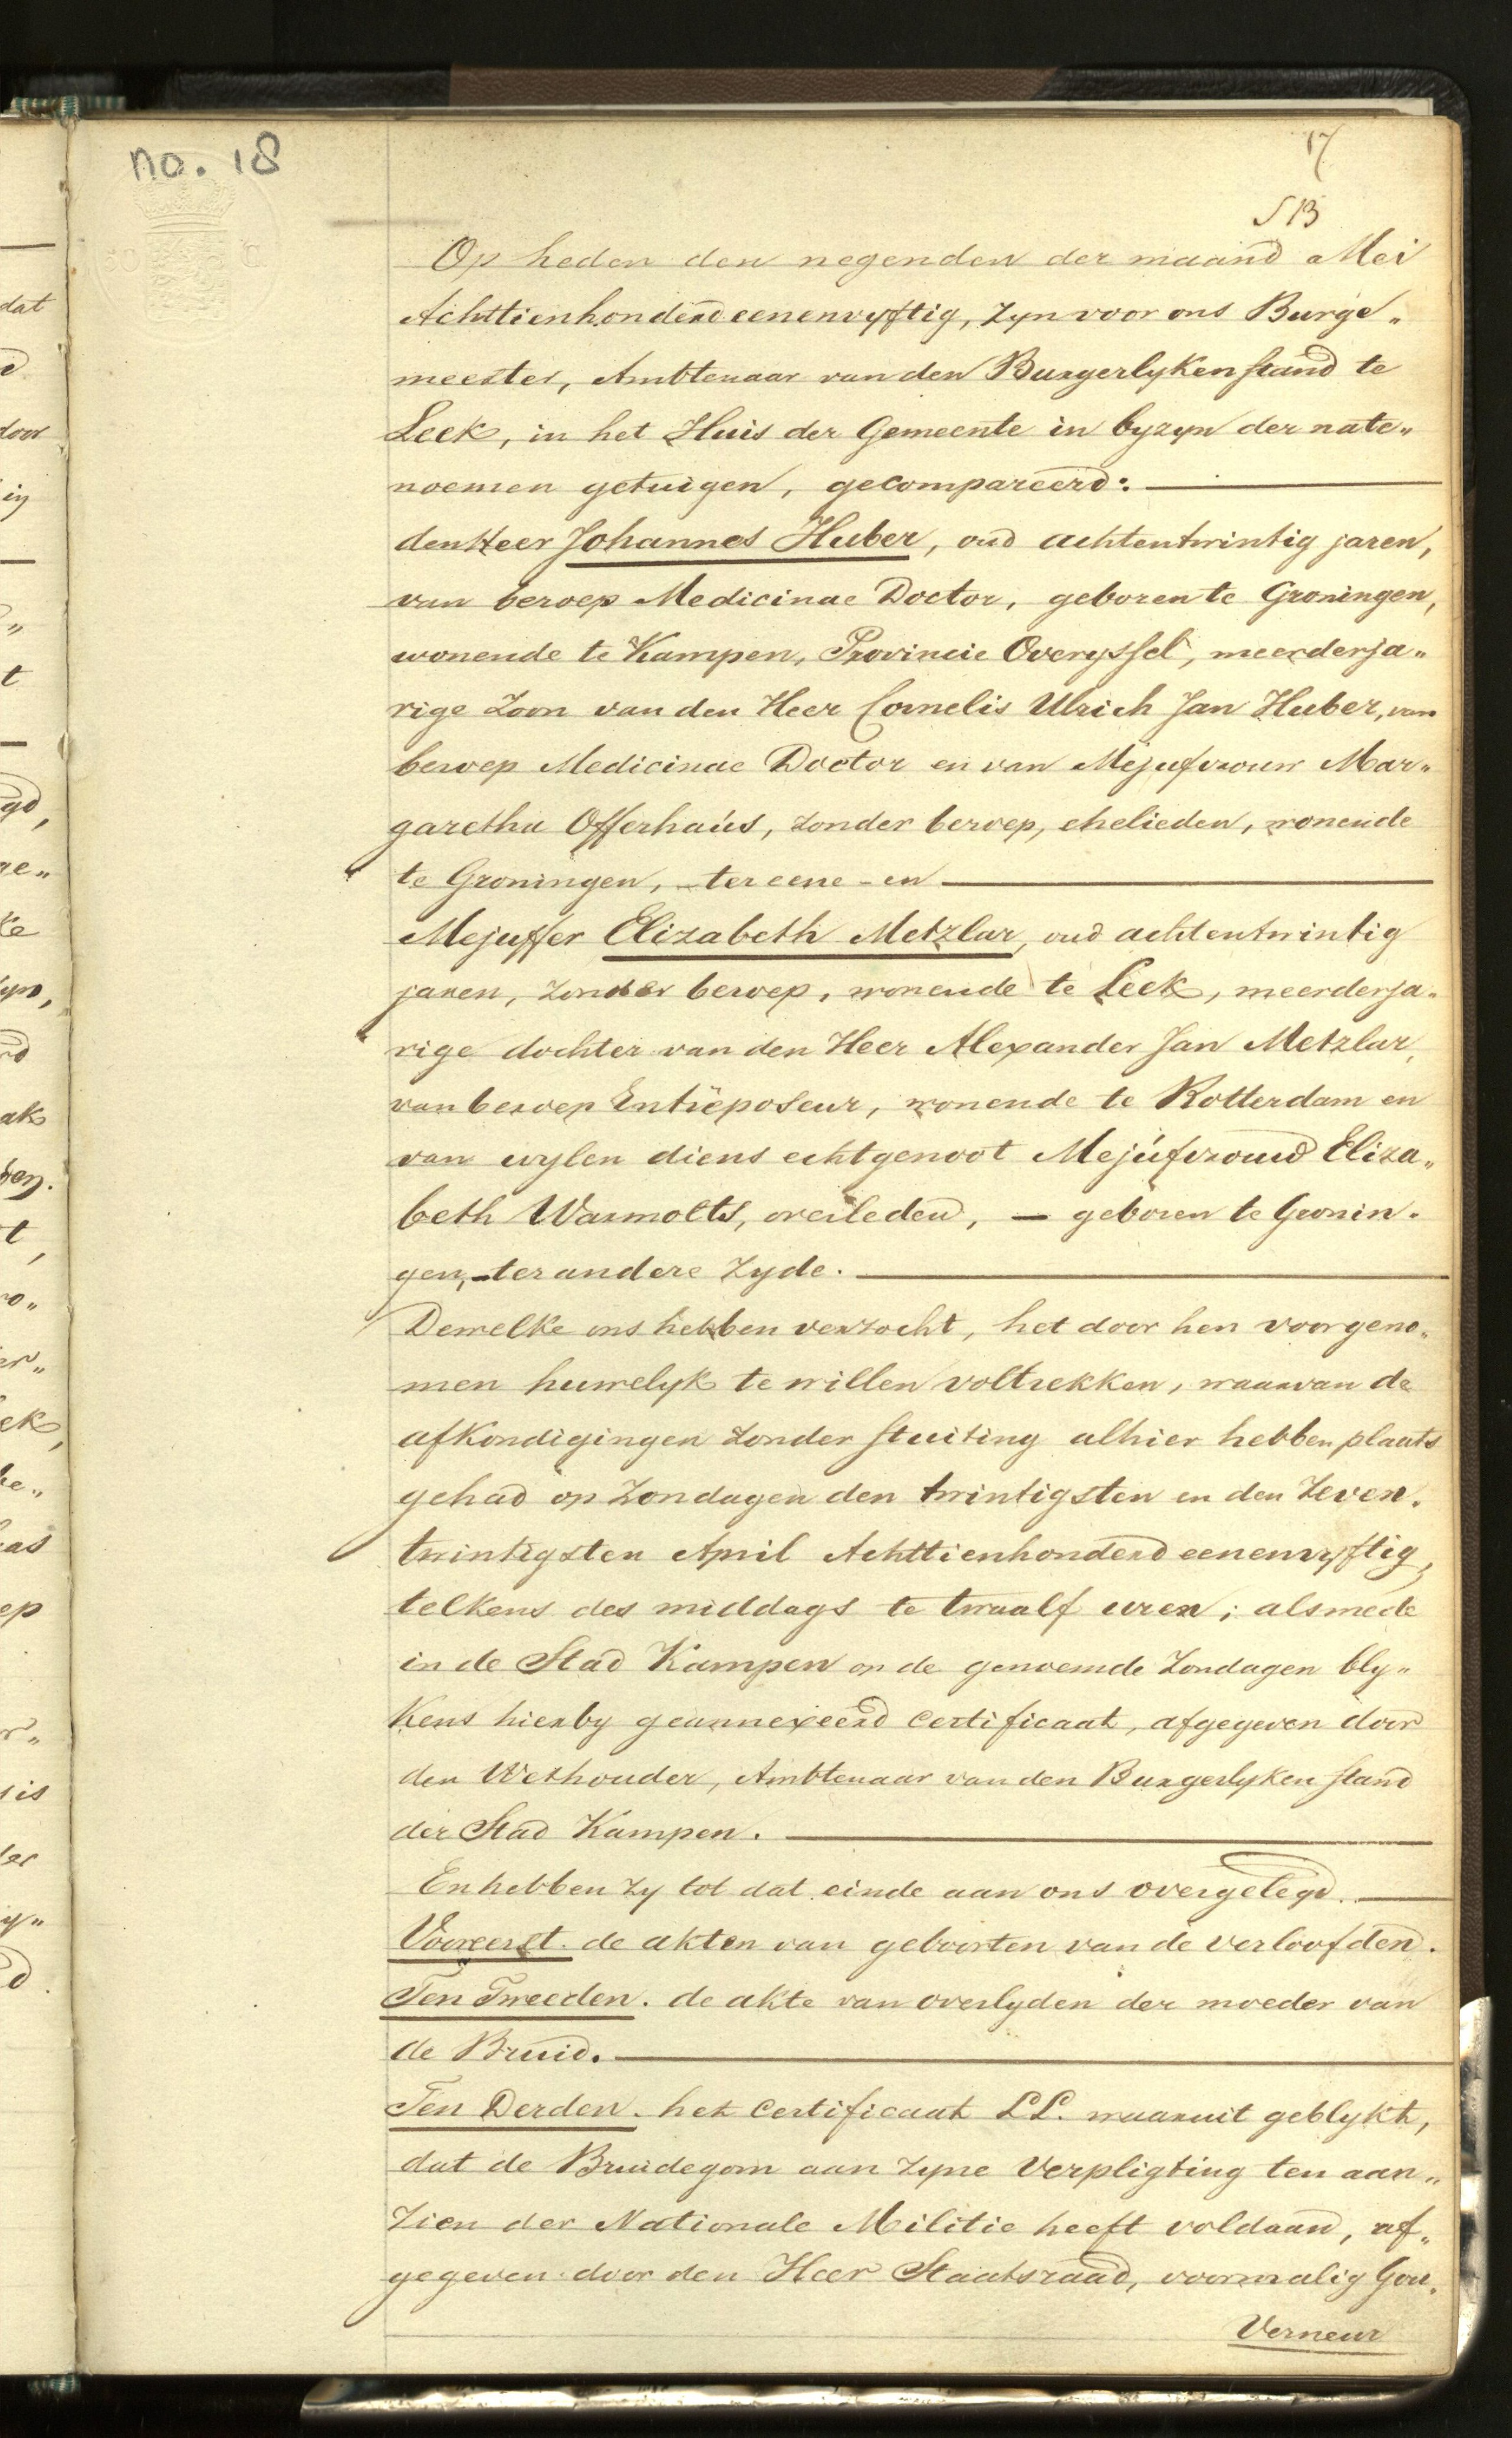 no. 18
17
S 13
Op heden den negenden der maand Mei
Achttienhonderd eenenvyftig, zyn voor ons Burge„
meester, Ambtenaar van den Burgerlyken stand te
Leek, in het Huis der Gemeente in byzyn der nate„
noemen getuigen, gecompareerd:
den Heer Johannes Huber, oud achtentwintig jaren,
van beroep Medicinae Doctor, geboren te Groningen,
wonende te Kampen, Provincie Overyssel, meerderja„
rige Zoon van den Heer Cornelis Ulrich Jan Huber, van
beroep Medicinae Doctor en van Mejufvrouw Mar„
garetha Offerhaus, zonder beroep, ehelieden, wonende
te Groningen, ter eene - en
Mejuffer Elizabeth Metzlar, oud achtentwintig
jaren, zonder beroep, wonende te Leek, meerderja„
rige dochter van den Heer Alexander Jan Metzlar,
van beroep Entreposeur, wonende te Rotterdam en
van wylen diens echtgenoot Mejufvrouw Eliza„
beth Warmolts, overleden, — geboren te Gronin„
gen, - ter andere Zyde.
Dewelke ons hebben verzocht, het door hen voorgeno„
men huwelyk te willen voltrekken, waarvan de
afkondigingen zonder stuiting alhier hebben plaats
gehad op Zondagen den twintigsten en den Zeven„
twintigsten April Achttienhonderd eenenvyftig,
telkens des middags te twaalf uren; alsmede
in de Stad Kampen op de genoemde Zondagen bly„
kens hierby geannexeerd certificaat, afgegeven door
den Wethouder, Ambtenaar van den Burgerlyken stand
der Stad Kampen.
En hebben zy tot dat einde aan ons overgelegd.
Vooreerst. de akten van geboorten van de verloofden.
Ten Tweeden. de akte van overlyden der moeder van
de Bruid.
Ten Derden. het Certificaat LL. waaruit geblykt,
dat de Bruidegom aan zyne Verpligting ten aan„
zien der Nationale Militie heeft voldaan, af„
gegeven door den Heer Staatsraad, voormalig Gou„
Verneur